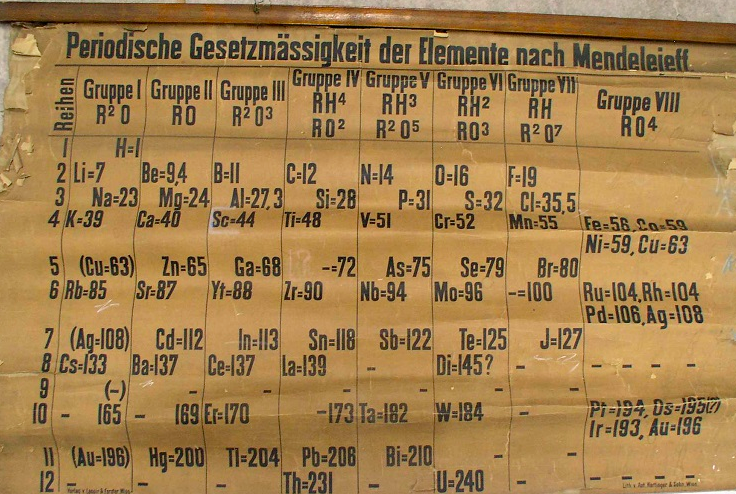 Periodische Gesetzmässigkeit der Elemente nach Mendelejeff.
Reihen Gruppe I Gruppe II Gruppe III Gruppe IV Gruppe V Gruppe VI Gruppe VII Gruppe VIII
RH⁴ RH³ RH² RH
R²O RO R²O³ RO² R²O⁵ RO³ R²O⁷ RO⁴
1 H=1
2 Li=7 Be=9,4 B=11 C=12 N=14 O=16 F=19
3 Na=23 Mg=24 Al=27,3 Si=28 P=31 S=32 Cl=35,5
4 K=39 Ca=40 Sc=44 Ti=48 V=51 Cr=52 Mn=55 Fe=56, Co=59
Ni=59, Cu=63
5 (Cu=63) Zn=65 Ga=68 -=72 As=75 Se=79 Br=80
6 Rb=85 Sr=87 Yt=88 Zr=90 Nb=94 Mo=96 -=100 Ru=104, Rh=104
Pd=106, Ag=108
7 (Ag=108) Cd=112 In=113 Sn=118 Sb=122 Te=125 J=127
8 Cs=133 Ba=137 Ce=137 La=139 - Di=145? - - - - -
9 (-) - - - - - -
10 - 165 - 169 Er=170 -173 Ta=182 W=184 - Pt=194, Os=195(?)
Ir=193, Au=196
11 (Au=196) Hg=200 Tl=204 Pb=206 Bi=210 - -
12 - - - Th=231 - U=240 - - - - -
Verlag v. Lenoir & Forster Wien.
Lith. v. Ant. Hartinger & Sohn, Wien.